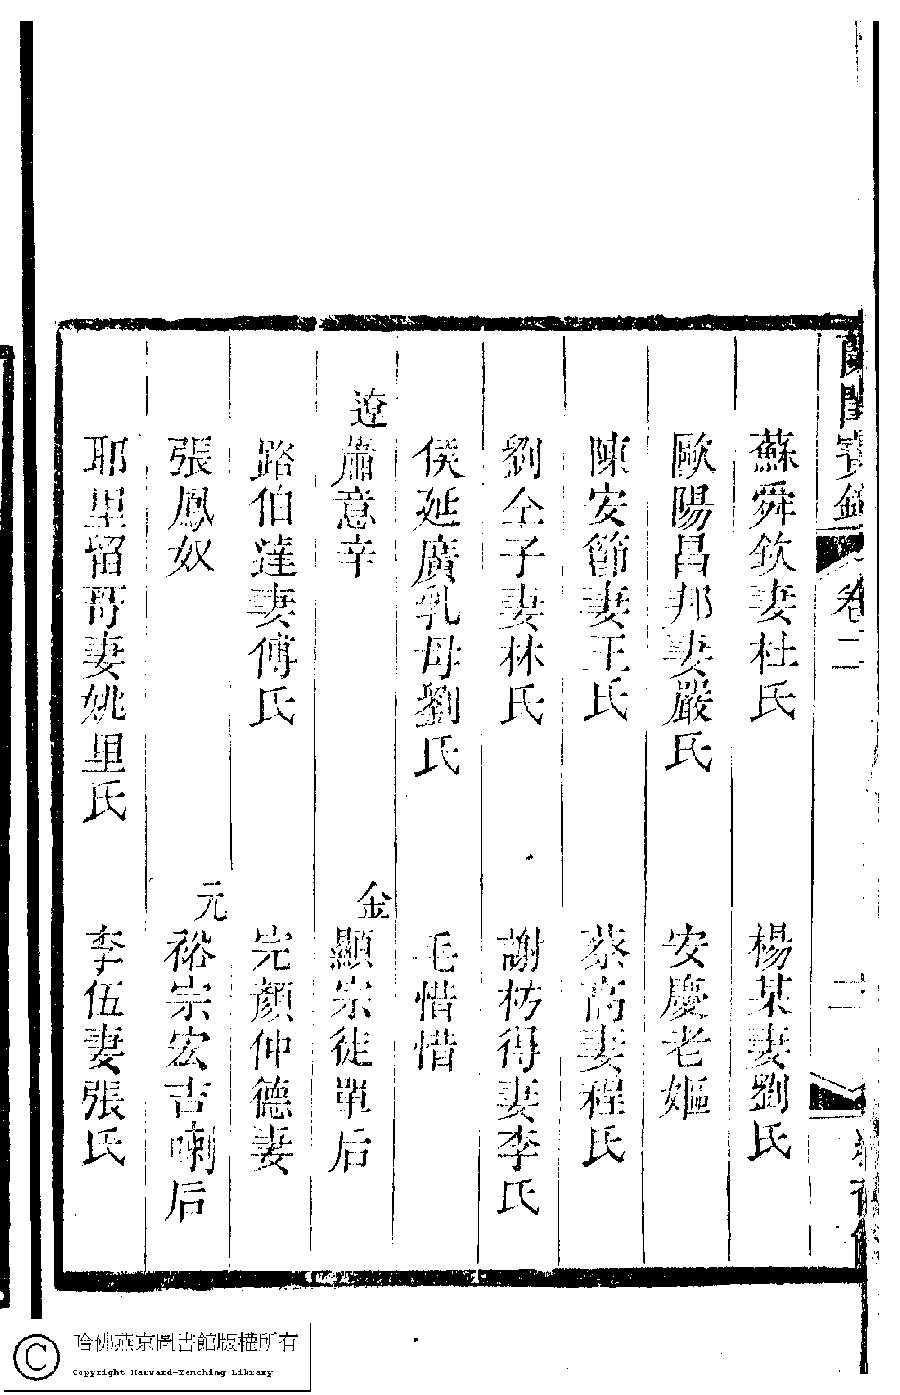 蘇舜欽妻杜氏 楊某妻劉氏
歐陽昌邦妻嚴氏 安慶老嫗
陳安節妻王氏 蔡高妻程氏
劉仝子妻林氏 謝枋得妻李氏
侯延廣乳母劉氏 毛惜惜
遼 蕭意辛 金 顯宗徒單后
路伯達妻傅氏 完顏仲德妻
張鳳奴 元 裕宗宏吉喇后
耶里留哥妻姚里氏 李伍妻張氏
卷二 二
哈佛燕京圖書館版權所有
Copyright Harvard-Yenching Library